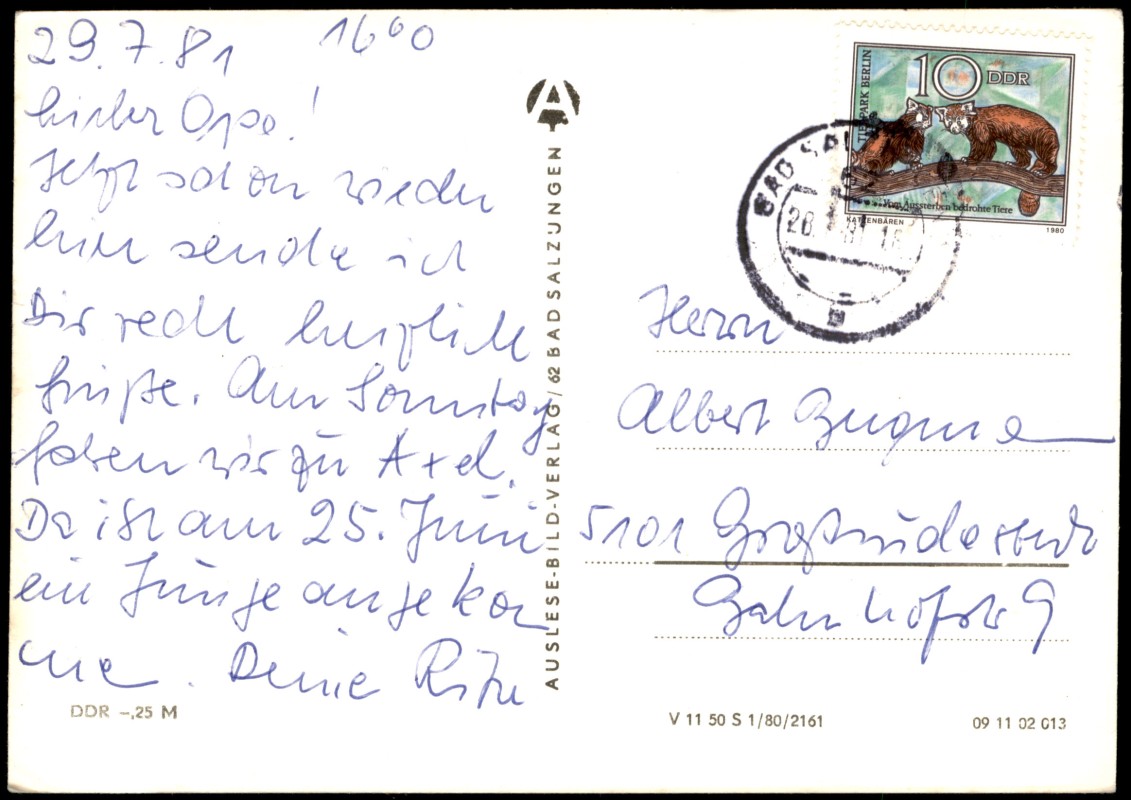 29.7.81 16⁰⁰
Lieber Opa!
Jetzt schon wieder
hier sende ich
Dir recht herzliche
Grüße. Am Sonntag
fahren wir zu Axel.
Da ist am 25. Juni
ein Junge angekom
me. Deine
DDR -,25 M
AUSLESE-BILD-VERLAG / 62 BAD SALZUNGEN
10 DDR
TIERPARK BERLIN
Vom Aussterben bedrohte Tiere
KATZENBÄREN
1980
BAD SAL
Herrn
Albert
5101
Bahnhofstr 9
V 11 50 S 1/80/2161
09 11 02 013